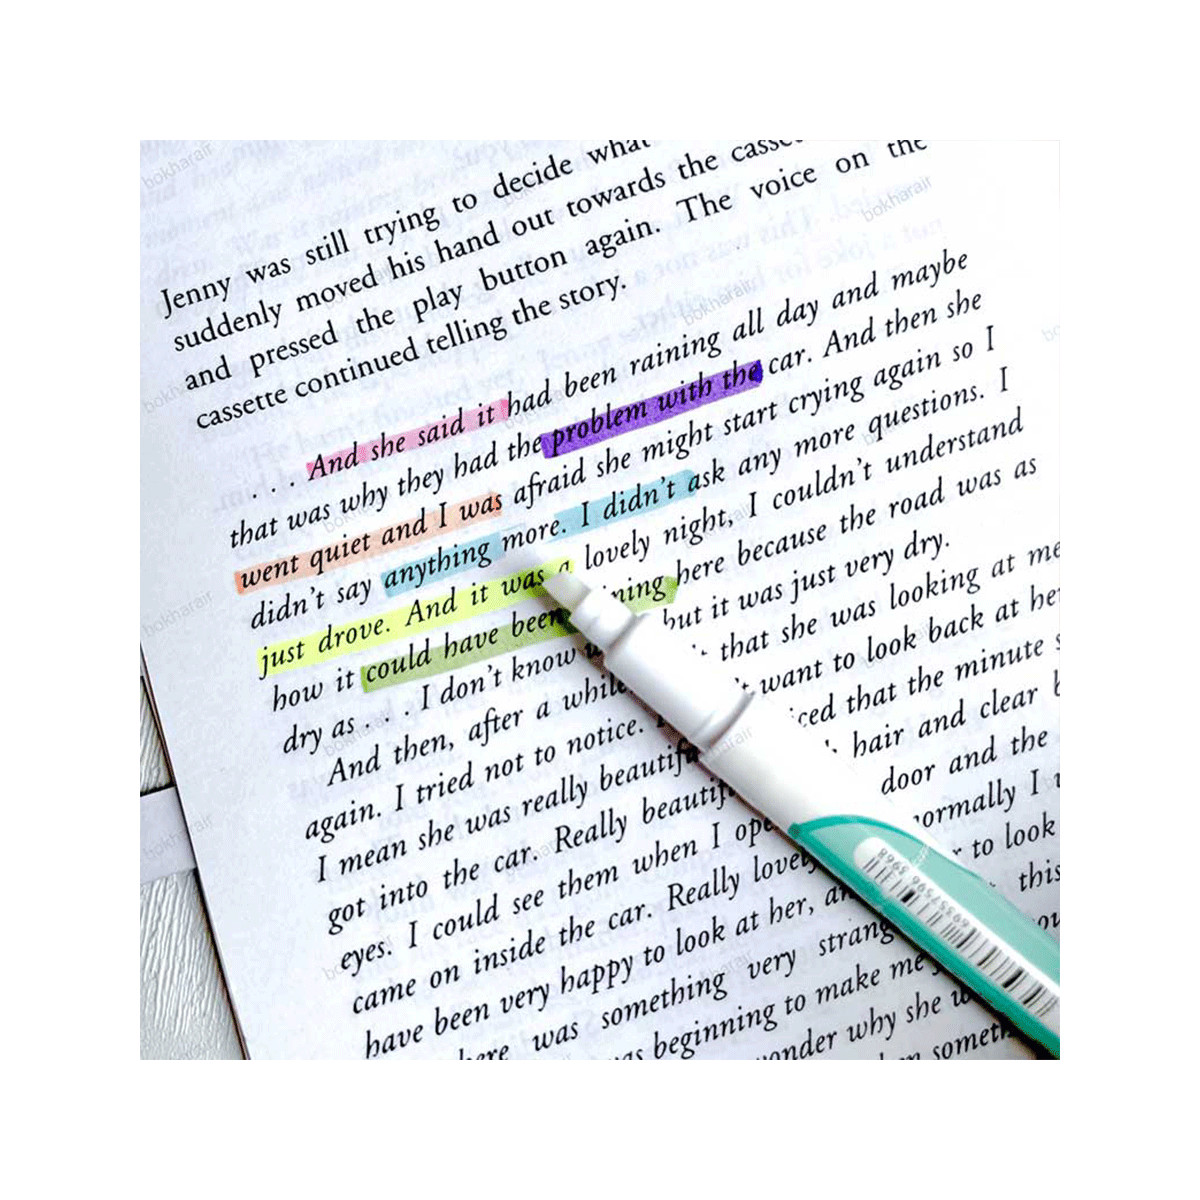 Jenny was still trying to decide what
suddenly moved his hand out towards the
and pressed the play button again. The voice on the
cassette continued telling the story.
. . . . And she said it had been raining all day and maybe
that was why they had the problem with the car. And then she
went quiet and I was afraid she might start crying again so I
didn't say anything more. I didn't ask any more questions. I
just drove. And it was a lovely night, I couldn't understand
how it could have been raining here because the road was as
dry as . . . I don't know but it was just very dry.
And then, after a while that she was looking at me
again. I tried not to notice. I want to look back at her
I mean she was really beautiful that the minute
got into the car. Really beautiful hair and clear
eyes. I could see them when I door and the
came on inside the car. Really lovely normally I
have been very happy to look at her, to look
was something very this
beginning to make me
wonder why she